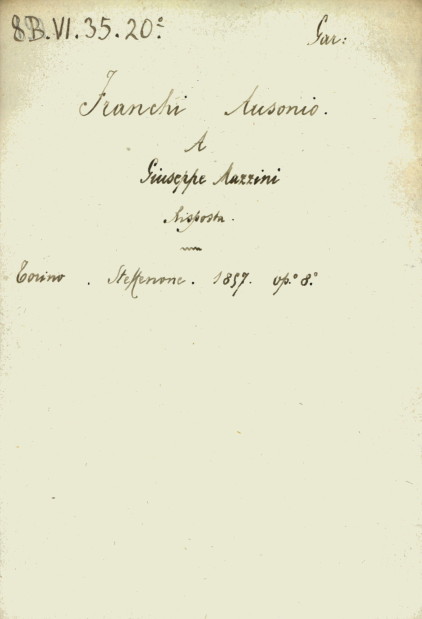 8B.VI.35.20²
Gar:
Franchi Ausonio.
A
Giuseppe Mazzini
Risposta.
Torino. Steffenone. 1857. op.° 8.°